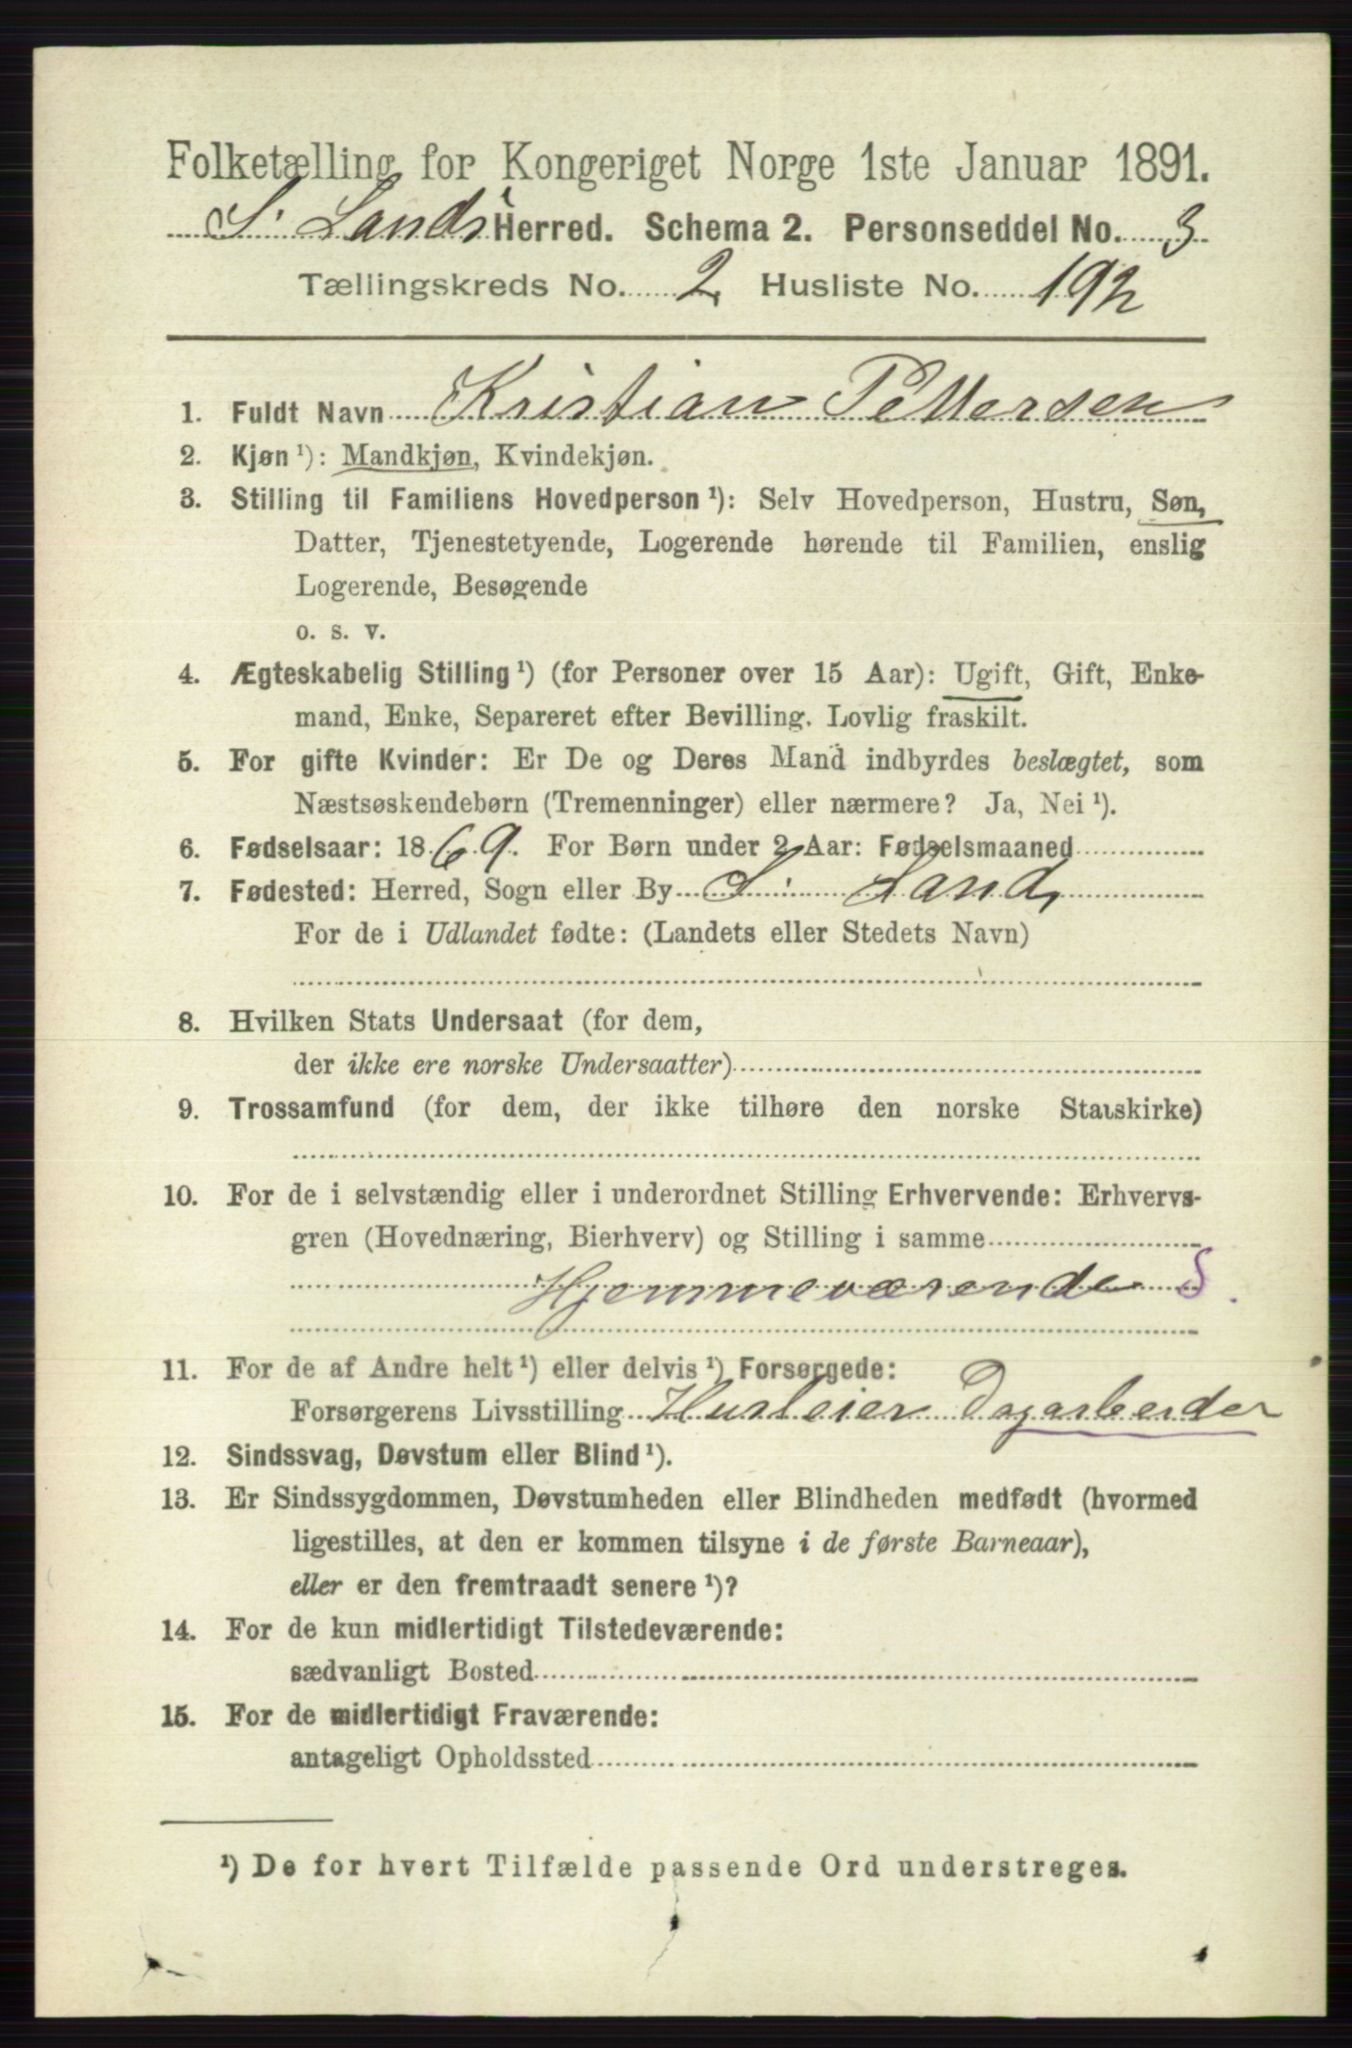 Folketælling for Kongeriget Norge 1ste Januar 1891.
S. Lands Herred. Schema 2. Personseddel No. 3
Tællingskreds No. 2 Husliste No. 192
1. Fuldt Navn Kristian Pettersen
2. Kjøn ¹): Mandkjøn, Kvindekjøn.
3. Stilling til Familiens Hovedperson ¹): Selv Hovedperson, Hustru, Søn,
Datter, Tjenestetyende, Logerende hørende til Familien, enslig
Logerende, Besøgende
o. s. v.
4. Ægteskabelig Stilling ¹) (for Personer over 15 Aar): Ugift, Gift, Enke-
mand, Enke, Separeret efter Bevilling. Lovlig fraskilt.
5. For gifte Kvinder: Er De og Deres Mand indbyrdes beslægtet, som
Næstsøskendebørn (Tremenninger) eller nærmere? Ja, Nei ¹).
6. Fødselsaar: 1869. For Børn under 2 Aar: Fødselsmaaned
7. Fødested: Herred, Sogn eller By S. Land,
For de i Udlandet fødte: (Landets eller Stedets Navn)
8. Hvilken Stats Undersaat (for dem,
der ikke ere norske Undersaatter)
9. Trossamfund (for dem, der ikke tilhøre den norske Statskirke)
10. For de i selvstændig eller i underordnet Stilling Erhvervende: Erhvervs-
gren (Hovednæring, Bierhverv) og Stilling i samme
Hjemmeværende S.
11. For de af Andre helt ¹) eller delvis ¹) Forsørgede:
Forsørgerens Livsstilling Husleier Dagarbeider
12. Sindssvag, Døvstum eller Blind ¹).
13. Er Sindssygdommen, Døvstumheden eller Blindheden medfødt (hvormed
ligestilles, at den er kommen tilsyne i de første Barneaar),
eller er den fremtraadt senere ¹)?
14. For de kun midlertidigt Tilstedeværende:
sædvanligt Bosted
15. For de midlertidigt Fraværende:
antageligt Opholdssted
¹) De for hvert Tilfælde passende Ord understreges.